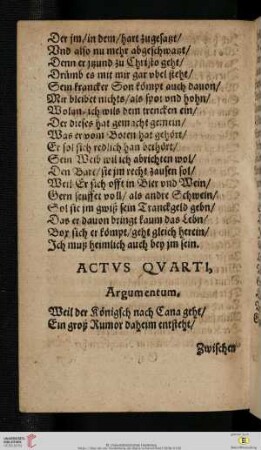 Der jm/ in dem/ hart zugesatzt/
Vnd also nu mehr abgeschwatzt/
Denn er jtzund zu Christo geht/
Drümb es mit mir gar vbel steht/
Sein krancker Son kömpt auch dauon/
Mir bleibet nichts/ als spot vnd hohn/
Wolan/ ich wils dem trencken ein/
Der dieses hat gemacht gemein/
Was er vom Boten hat gehört/
Er sol sich redlich han bethört/
Sein Weib wil ich abrichten wol/
Den Bart/ sie jm recht zausen sol/
Weil Er sich offt in Bier vnd Wein/
Gern seuffet voll/ als andre Schwein/
Sol sie jm gwiß sein Tranckgeld gebn/
Das er dauon bringt kaum das Lebn/
Box sich er kömpt/ geht gleich herein/
Ich muß heimlich auch bey jm sein.
ACTVS QVARTI,
Argumentum.
Weil der Königsch nach Cana geht/
Ein groß Rumor daheim entsteht/
Zwischen